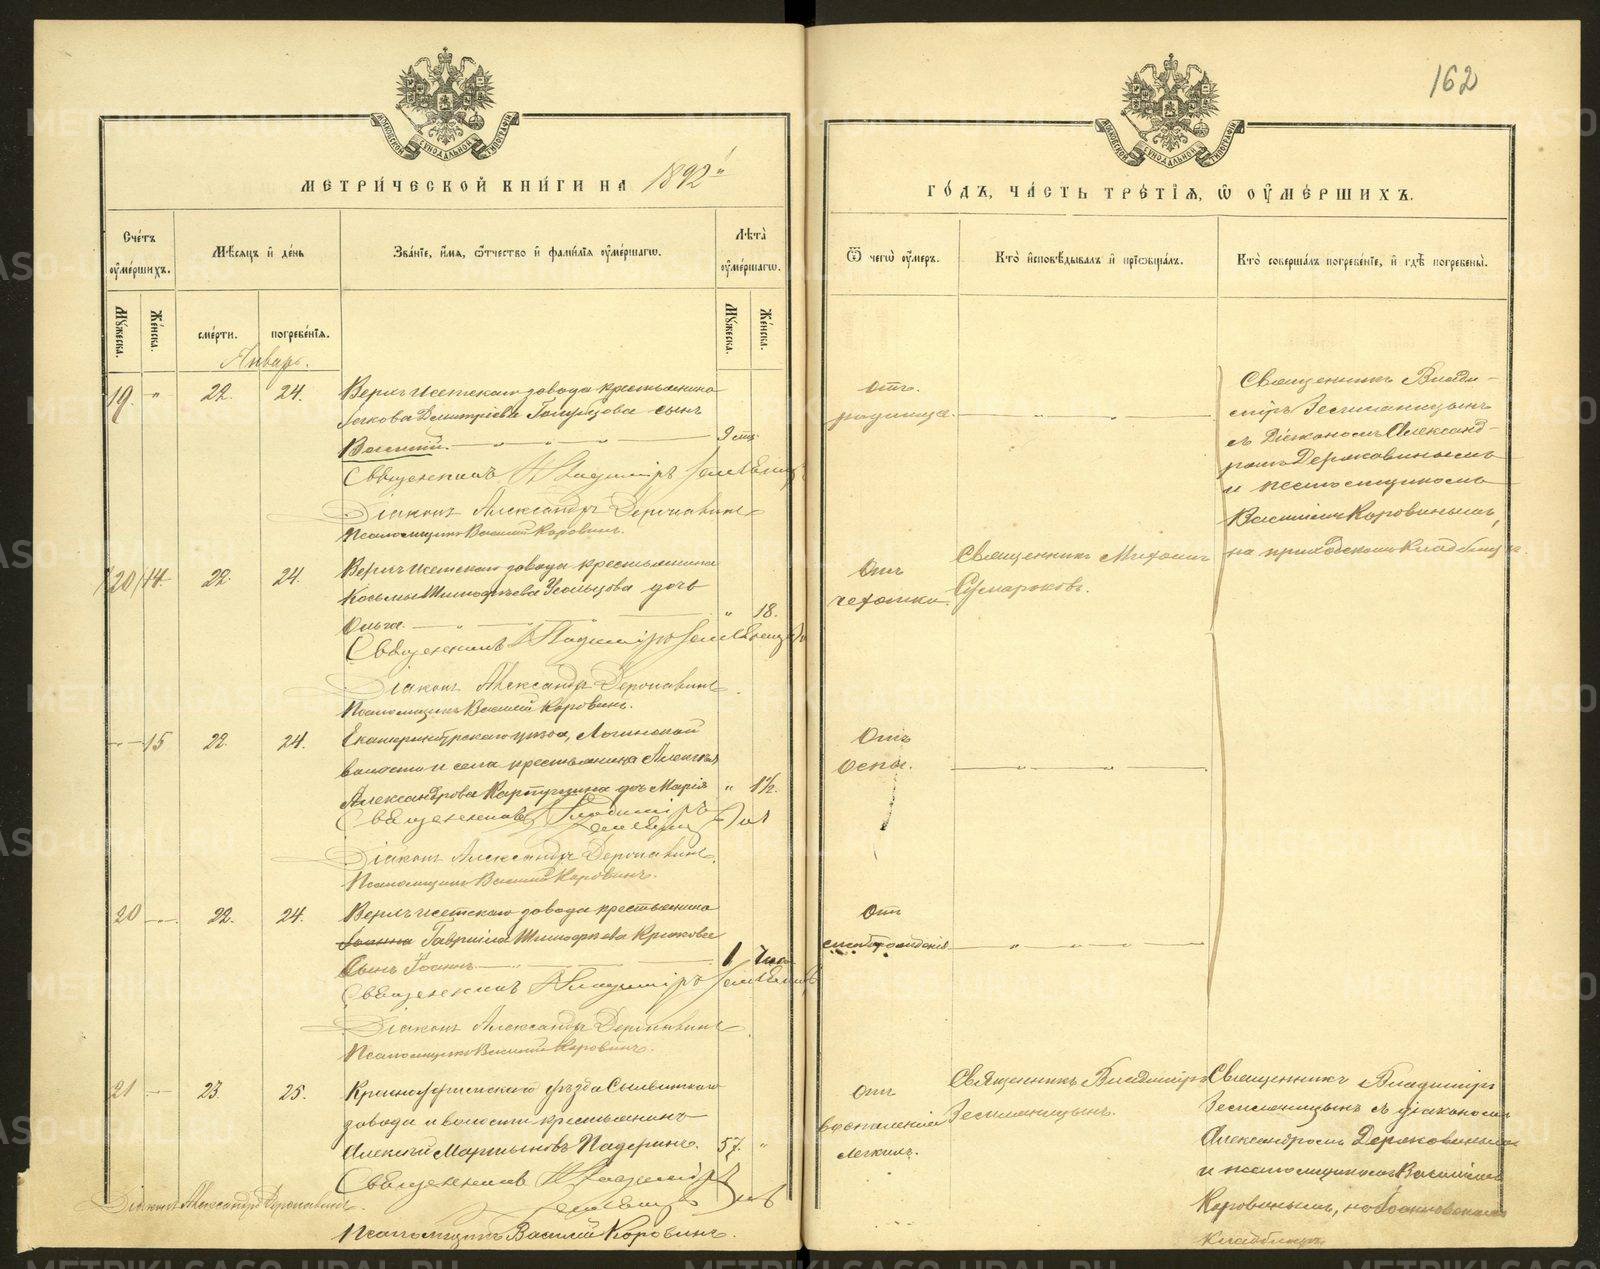 162
МЕТРИ́ЧЕСКОЙ КНИ́ГИ НА 1892
ГО́ДЪ, ЧА́СТЬ ТРЕ́ТIѦ, Ѿ ОУ҆МЕ́РШИХЪ.
Сче́тъ оумершихъ.
Мѣсѧцъ и де́нь
Зва́нїе, и́мѧ, ѻтчество и фами́лїѧ оуме́ршагѡ.
Лѣта̀ оуме́ршагѡ.
Мꙋжеска.
Же́нска.
сме́рти.
погребе́нїѧ.
Мꙋжеска.
Же́нска.
Ѿ чегѡ̀ оу́меръ.
Кто̀ исповѣ́дывалъ и прїѡбща́лъ.
Кто̀ соверша́лъ погребе́нїе, и гдѣ̀ погребены̀.
Январь.
19. " 22. 24. Верхъ-Исетскаго завода крестьянина
Іакова Димитріева Голубцова сынъ
Василий. 9 мц.
Священникъ Владиміръ Земляницынъ
Діаконъ Александръ Державинъ
Псаломщикъ Василий Коровинъ.
Отъ
родимца.
Священникъ Влади-
міръ Земляницынъ
съ Діакономъ Александ-
ромъ Державинымъ
и псаломщикомъ
Василіемъ Коровинымъ,
на приходскомъ кладбищѣ.
20/14. 22. 24. Верхъ-Исетскаго завода крестьянина
Косьмы Тимофѣева Усольцова дочь
Ольга. " 18.
Священникъ Владиміръ Земляницынъ
Діаконъ Александръ Державинъ
Псаломщикъ Василий Коровинъ.
Отъ
чахотки.
Священникъ Михаилъ
Сумароковъ.
" 15 22. 24. Екатеринбургскаго уѣзда, Логиновской
волости и села крестьянина Алексѣя
Александрова Карпушина дочь Марія " 1½.
Священникъ Владиміръ
Земляницынъ
Діаконъ Александръ Державинъ.
Псаломщикъ Василий Коровинъ.
Отъ
Оспы.
20 " 22. 24. Верхъ-Исетскаго завода крестьянина
Іоанна Гавриила Тимофѣева Крюкова
Сынъ Іоаннъ 1 часа
Священникъ Владиміръ Земляницынъ
Діаконъ Александръ Державинъ
Псаломщикъ Василий Коровинъ.
Отъ
слаборожденія
21 23. 25. Красноуфимскаго уѣзда Сылвинскаго
завода и волости крестьянинъ
Алексѣй Мартыновъ Падеринъ. 57. "
Священникъ Владиміръ
Земляницынъ
Діаконъ Александръ Державинъ.
Псаломщикъ Василий Коровинъ.
Отъ
воспаленія
легкихъ.
Священникъ Владиміръ
Земляницынъ.
Священникъ Владиміръ
Земляницынъ съ діакономъ
Александромъ Державинымъ
и псаломщикомъ Василіемъ
Коровинымъ, на Іоанновскомъ
кладбищѣ